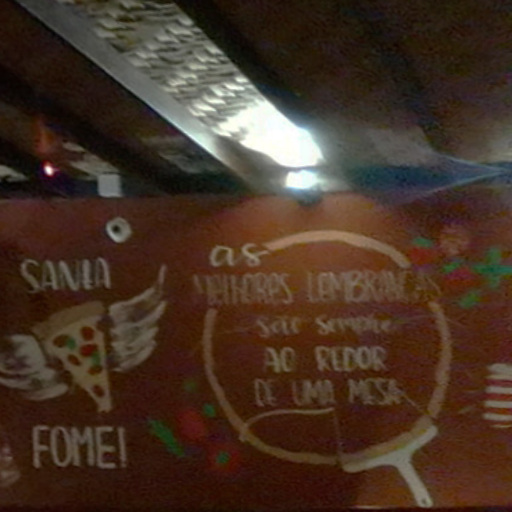 SANTA
FOME!
as
MELHORES LEMBRANÇAS
são sempre
AO REDOR
DE UMA MESA